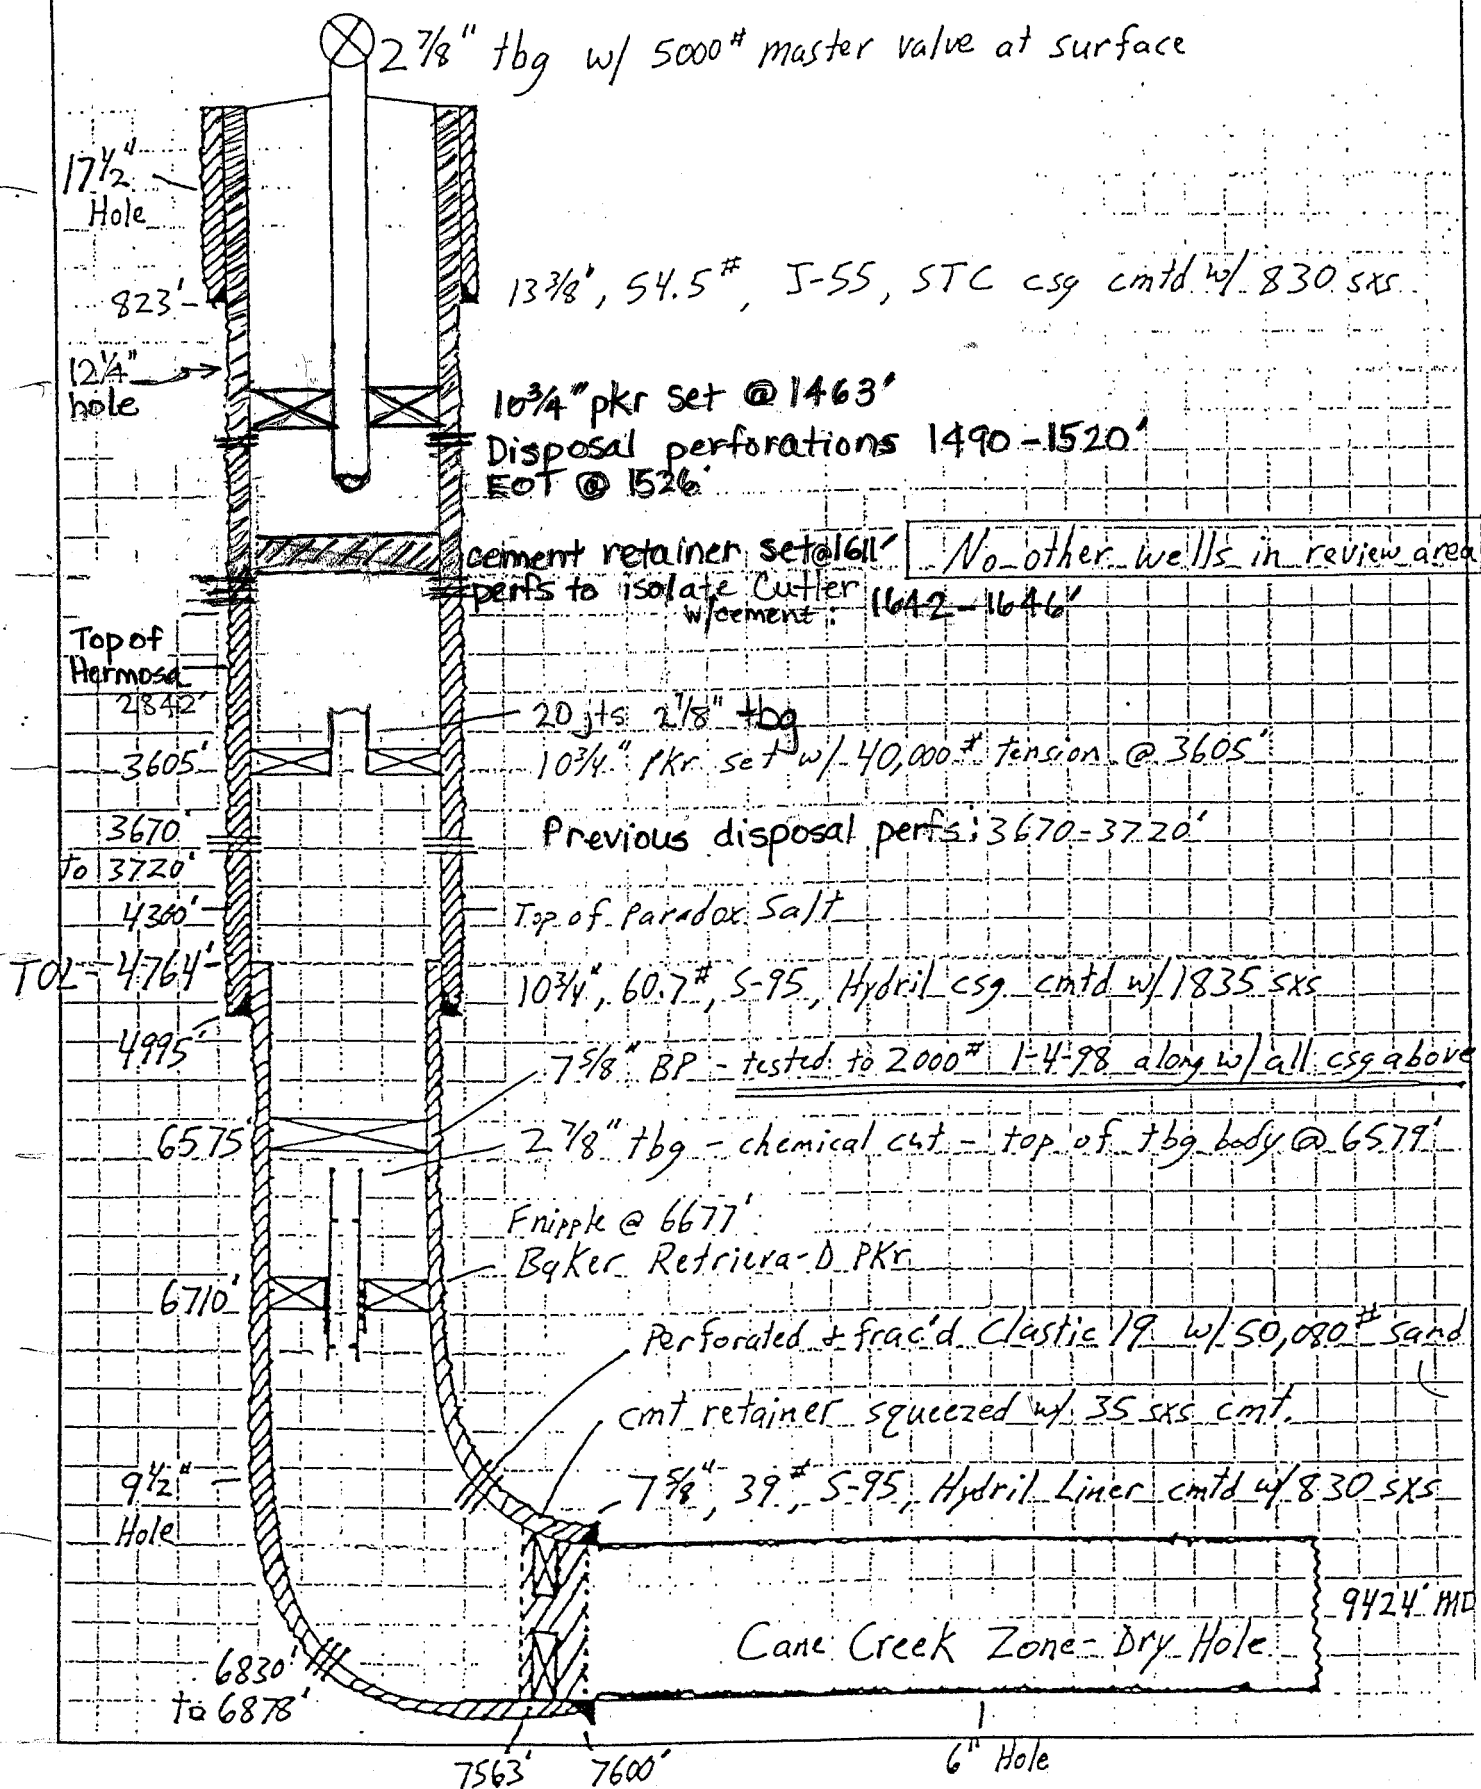 2 7/8" tbg w/ 5000# master valve at surface
17 1/2"
Hole
823'
13 3/8", 54.5#, J-55, STC csg cmtd w/ 830 sxs
12 1/4"
hole
10 3/4" pkr set @ 1463'
Disposal perforations 1490-1520'
EOT @ 1526'
cement retainer set@1611'
No other wells in review area
perfs to isolate Cutler
w/cement: 1642-1646'
Top of
Hermosa
2842'
20 jts 2 7/8" tbg
3605'
10 3/4" Pkr set w/ 40,000# tension @ 3605'
3670'
to 3720'
Previous disposal perfs: 3670-3720'
4360'
Top of Paradox Salt
TOL - 4764'
10 3/4", 60.7#, S-95, Hydril csg cmtd w/ 1835 sxs
4995'
7 5/8" BP - tested to 2000# 1-4-98 along w/ all csg above
6575'
2 7/8" tbg - chemical cut - top of tbg body @ 6579'
F nipple @ 6677'
Baker Retrieva-D PKr
6710'
Perforated + frac'd Clastic 19 w/ 50,080# sand
cmt retainer squeezed w/ 35 sxs cmt.
9 1/2"
Hole
7 5/8", 39#, S-95, Hydril Liner cmtd w/ 830 sxs
9424' MD
Cane Creek Zone - Dry Hole
6830'
to 6878'
7563'
7600'
6" Hole